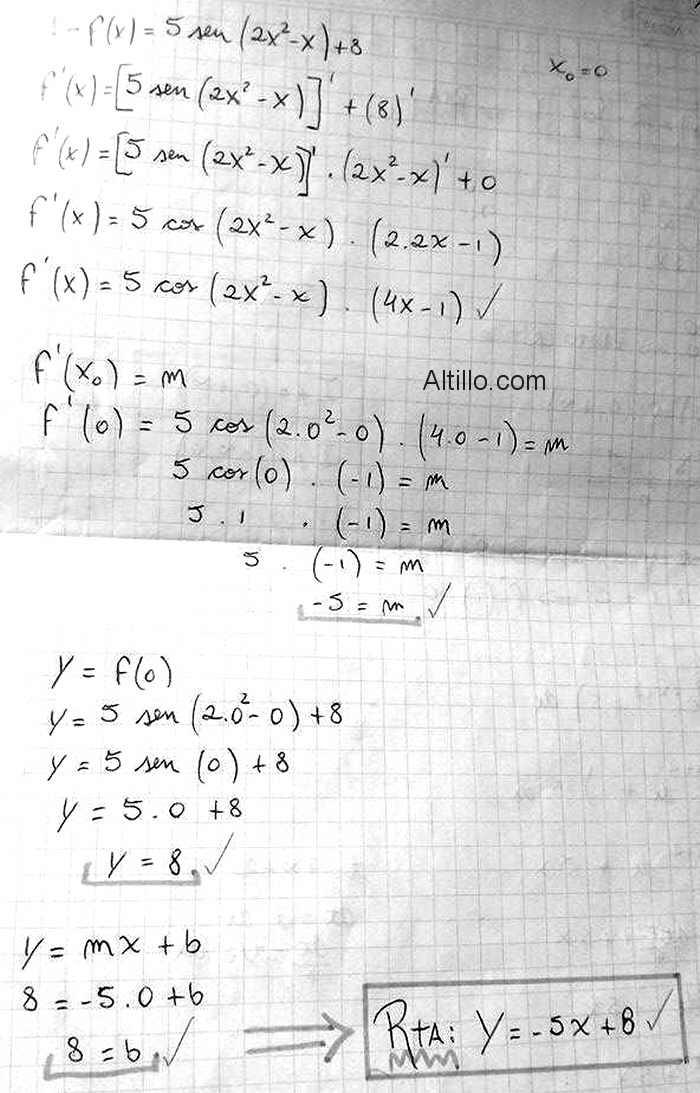 - f(x) = 5 sen (2x²-x) + 8
x₀ = 0
f'(x) = [5 sen (2x² - x)]' + (8)'
f'(x) = [5 sen (2x² - x)]' . (2x²-x)' + 0
f'(x) = 5 cos (2x² - x) . (2.2x - 1)
f'(x) = 5 cos (2x² - x) . (4x - 1) ✓
f'(x₀) = m
Altillo.com
f'(0) = 5 cos (2.0² - 0) . (4.0 - 1) = m
5 cos (0) . (-1) = m
5 . 1 . (-1) = m
5 . (-1) = m
-5 = m. ✓
y = f(0)
y = 5 sen (2.0² - 0) + 8
y = 5 sen (0) + 8
y = 5.0 + 8
y = 8. ✓
y = mx + b
8 = -5.0 + b
8 = b. ✓
⇒ RtA: y = -5x + 8 ✓